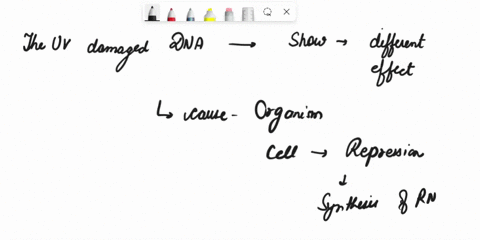 The UV damaged DNA → Show → different
effect
↳ cause - Organism
Cell → Repression
↓
Synthesis of RN